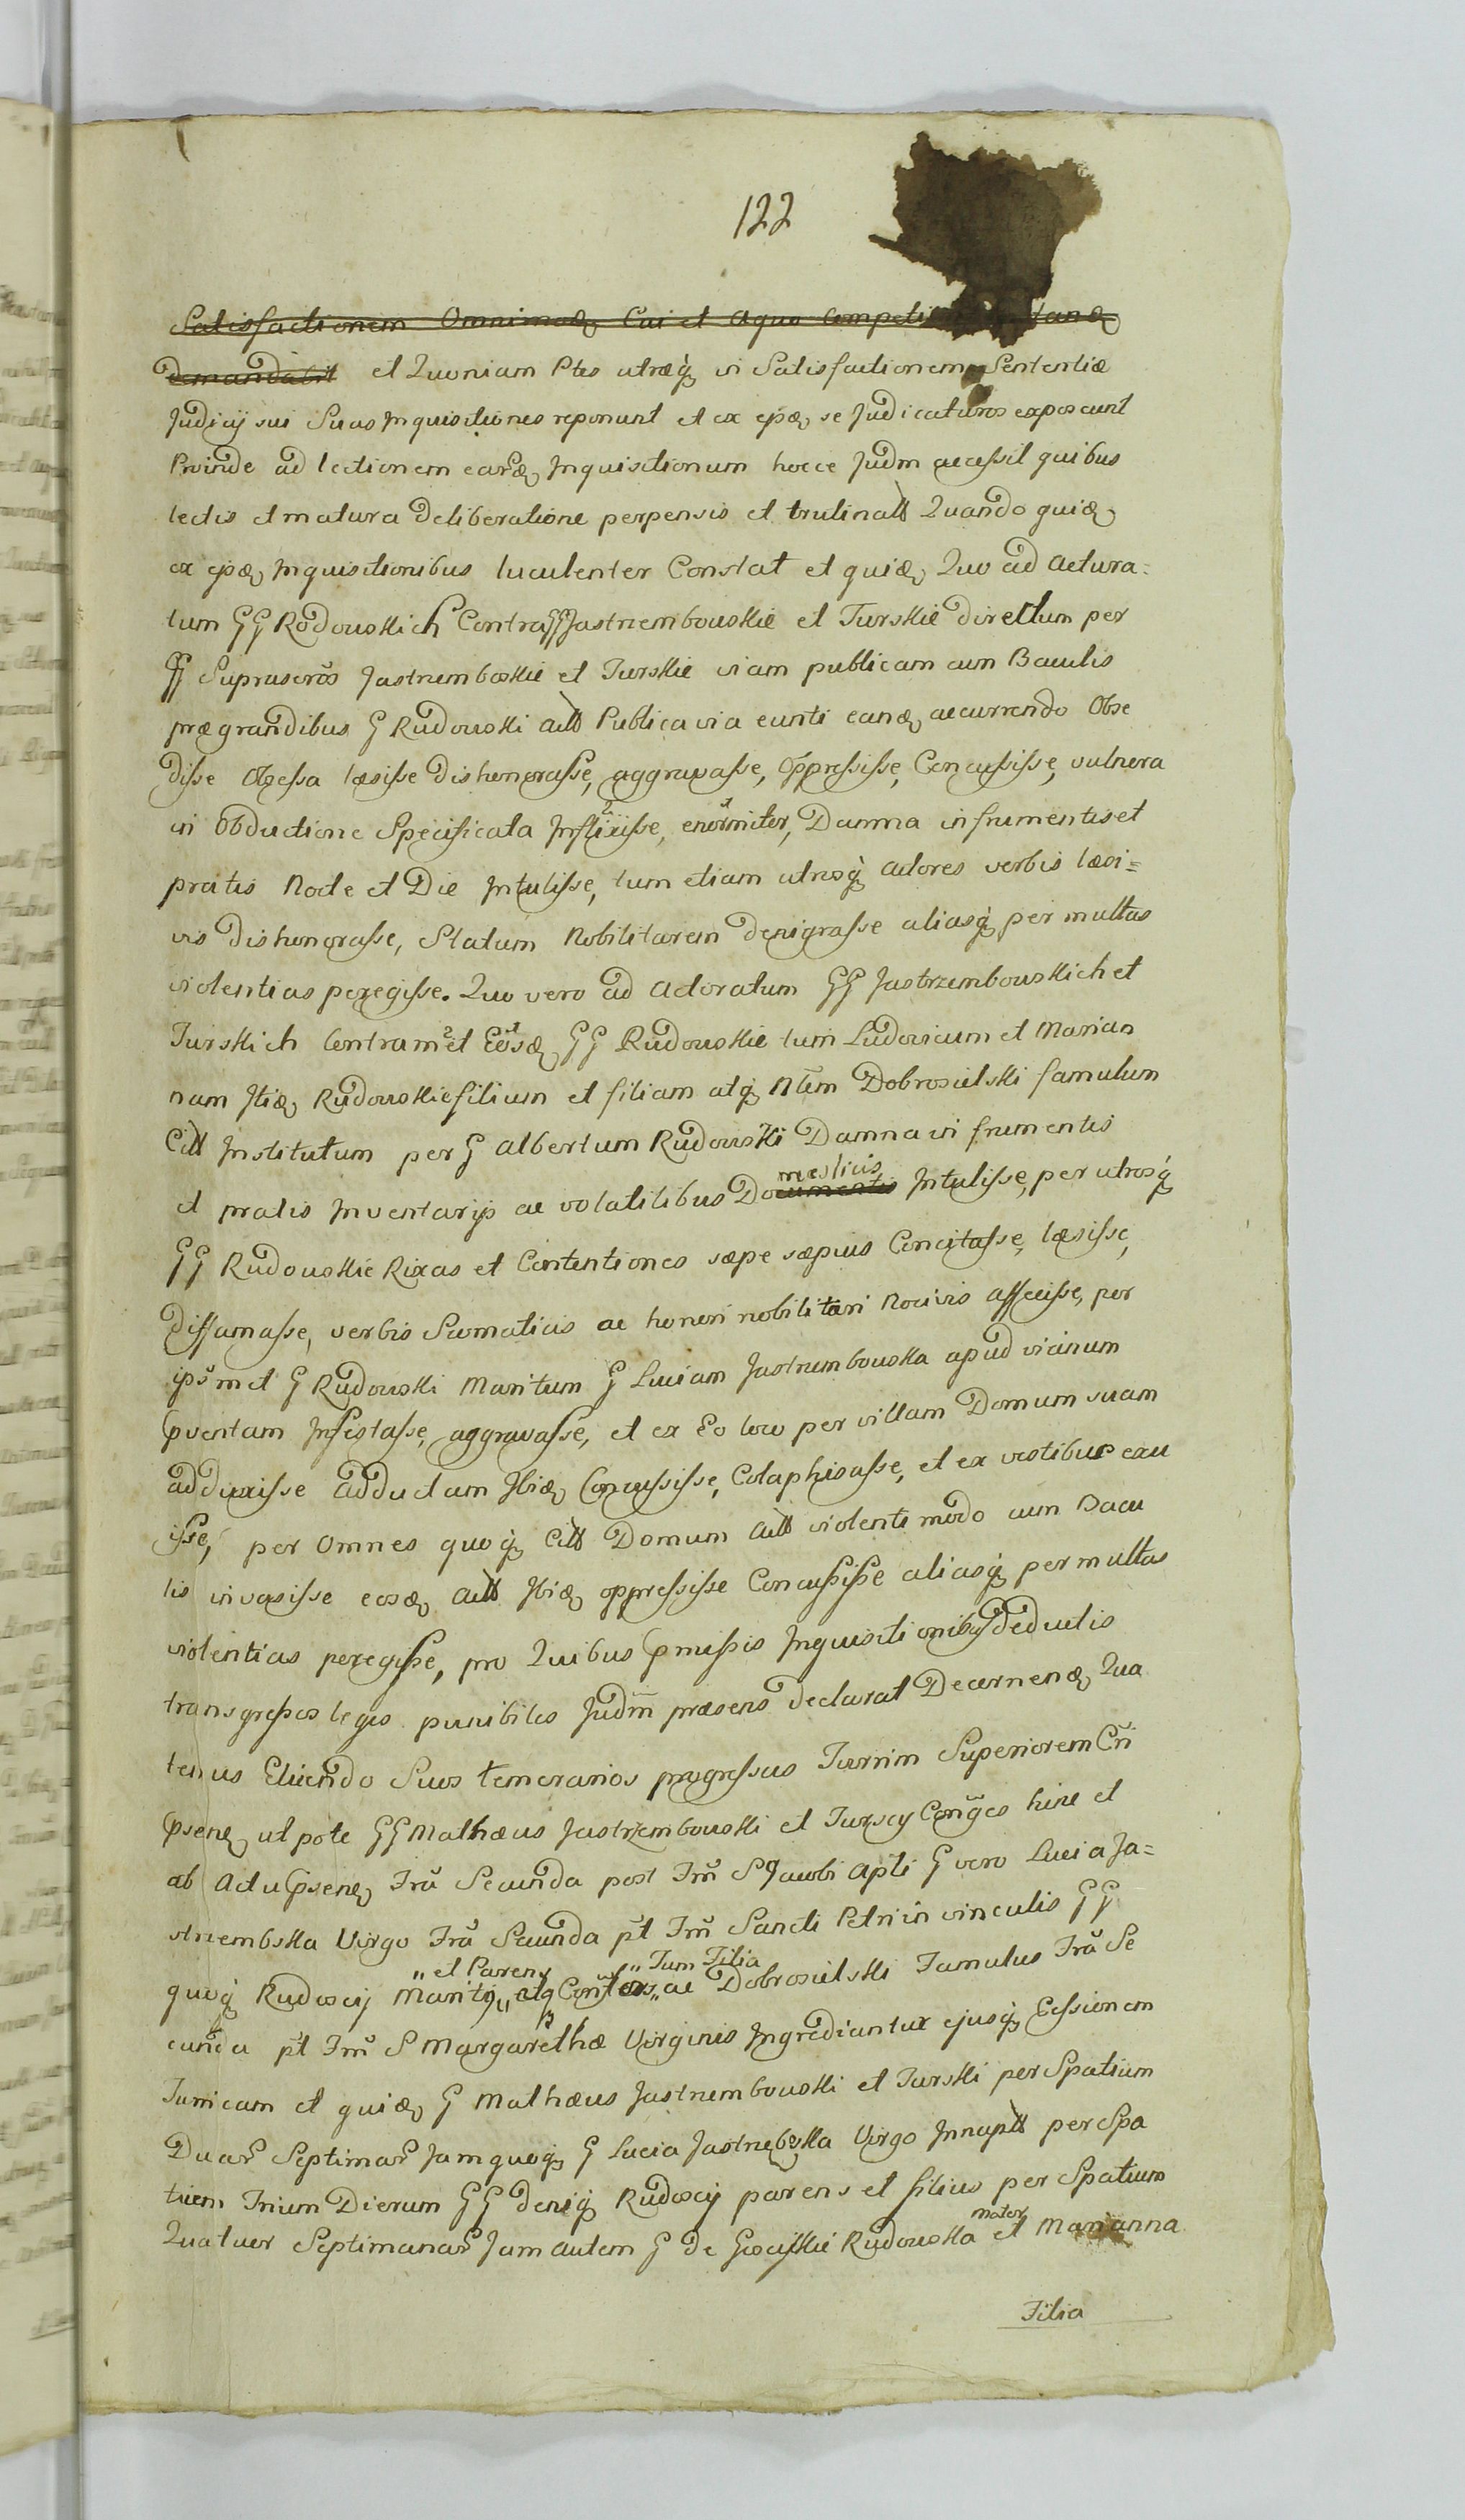 122
Satisfactionem Omnimodæ Cui et aquo Competit
demandabit et Quoniam Ptes utræq̀ in Satisfactionem Sententiæ
Judicij sui Suas Inquisitiones reponunt et ex ejsdæ se Judicaturos exposcunt
Proinde ad lectionem earundæ Inquisitionum hocce Judm accessit quibus
lectis et matura deliberatione perpensis et trutinatt Quando quidæ
ex ejsdæ Inquisitionibus luculenter Constat et quidæ Quo ad Actora=
tum GG Rodowskich Contra GG Jastrzembowskie et Turskie directum per
GG Suprascros Jastrzemboskie et Turskie viam publicam cum Baculis
prægrandibus G Rudowski actt Publica via eunti eandæ accurrendo Obse
disse Obsessa læsisse dishonorasse, aggravasse, oppressisse, Concussisse, vulnera
in obductione Specificata Inflixisse, enormiter, Damna in frumentis et
pratis Nocte et Die Intulisse, tum etiam utrosq̀ actores verbis læsi=
vis dishonorasse, Statum Nobilitarem denigrasse aliasq̀ per multas
violentias peregisse. Quo vero ad Actoratum GG Jastrzembowskich et
Turskich Contra met Eosdæ GG Rudowskie tum Ludovicum et Marian
nam Itidæ Rudowskie filium et filiam atq̀ Ntem Dobrosielski famulum
Citt Institutum per G Albertum Rudowski Damna in frumentis
mesticis
et pratis Inventarijs ac volatilibus Documentis Intulisse, per utrosq̀
GG Rudowskie Rixas et Contentiones sæpe sæpius Concitasse, læsisse,
diffamasse, verbis Scomaticis ac honori nobilitari Nocivis affecisse, per
ipsmet G Rudowski Maritum G Luciam Jastrzembowska apud vicinum
Pventam Infestasse, aggravasse, et ex Eo loco per villam Domum suam
adduxisse adductam Ibidæ Concussisse, Colaphisasse, et ex vestibus exu
isse, per Omnes quoq̀ Citt Domum Actt violenti modo cum Bacu
lis invasisse eosdæ Actt Ibidæ oppressisse Concussisse aliasq̀ per multas
violentias peregisse, pro Quibus Pmissis Inquisitionibus deductis
transgressos leges punibiles Judm præsens declarat Decernendæ Qua
tenus Eluendo Suos temerarios progressus Turrim Superiorem Cri
Psenæ ut pote GG Mathæus Jastrzembowski et Turscy Conges hinc et
ab Actu Psenæ Fra Secunda post Fm S Jacobi Apli G vero Lucia Ja=
strzembska Virgo Fra Secunda pt Fm Sancti Petri in vinculis GG
„ et Parens „ Tum Filia
quoq̀ Rudoscij Mariti „ atq̀ „ ac Dobrosielski Famulus Fra Se
cunda pt Fm S Margarethæ Virginis Ingrediantur ejusq̀ Sessionem
Turricam et quidæ G Mathæus Jastrzembowski et Turski per Spatium
Duar Septimar Jam quoq̀ G Lucia Jastrzębska Virgo Innuptt per Spa
tium Trium Dierum GG deniq̀ Rudoscij parens et filius per Spatium
mater
Quatuor Septimanar Jam autem G de Rudowska et Marianna
Filia